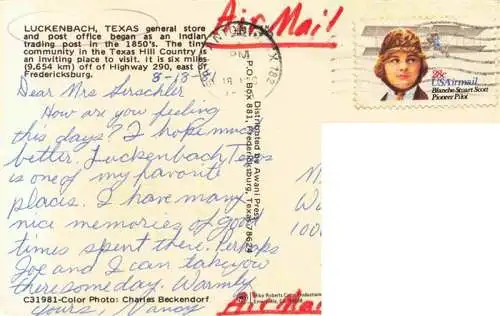 LUCKENBACH, TEXAS general store
and post office began as an Indian
trading post in the 1850's. The tiny
community in the Texas Hill Country is
an inviting place to visit. It is six miles
(9.654 km) off of Highway 290, east of
Fredericksburg.
8-13-
Dear Mrs
How are you feeling
this days? I hope much
better. Luckenbach Texas
is one of my favorite
places. I have many
nice memories of good
times spent there. Perhaps
Joe and I can take you
there someday. Warmly
Yours, Nancy
C31981-Color Photo: Charles Beckendorf
Distributed by Awani Press
P.O. Box 881, Fredericksburg, Texas 78624
Air Mail
SAN ANTONIO, TX 782
PM
28c
USAirmail
Blanche Stuart Scott
Pioneer Pilot
100
Air Mai